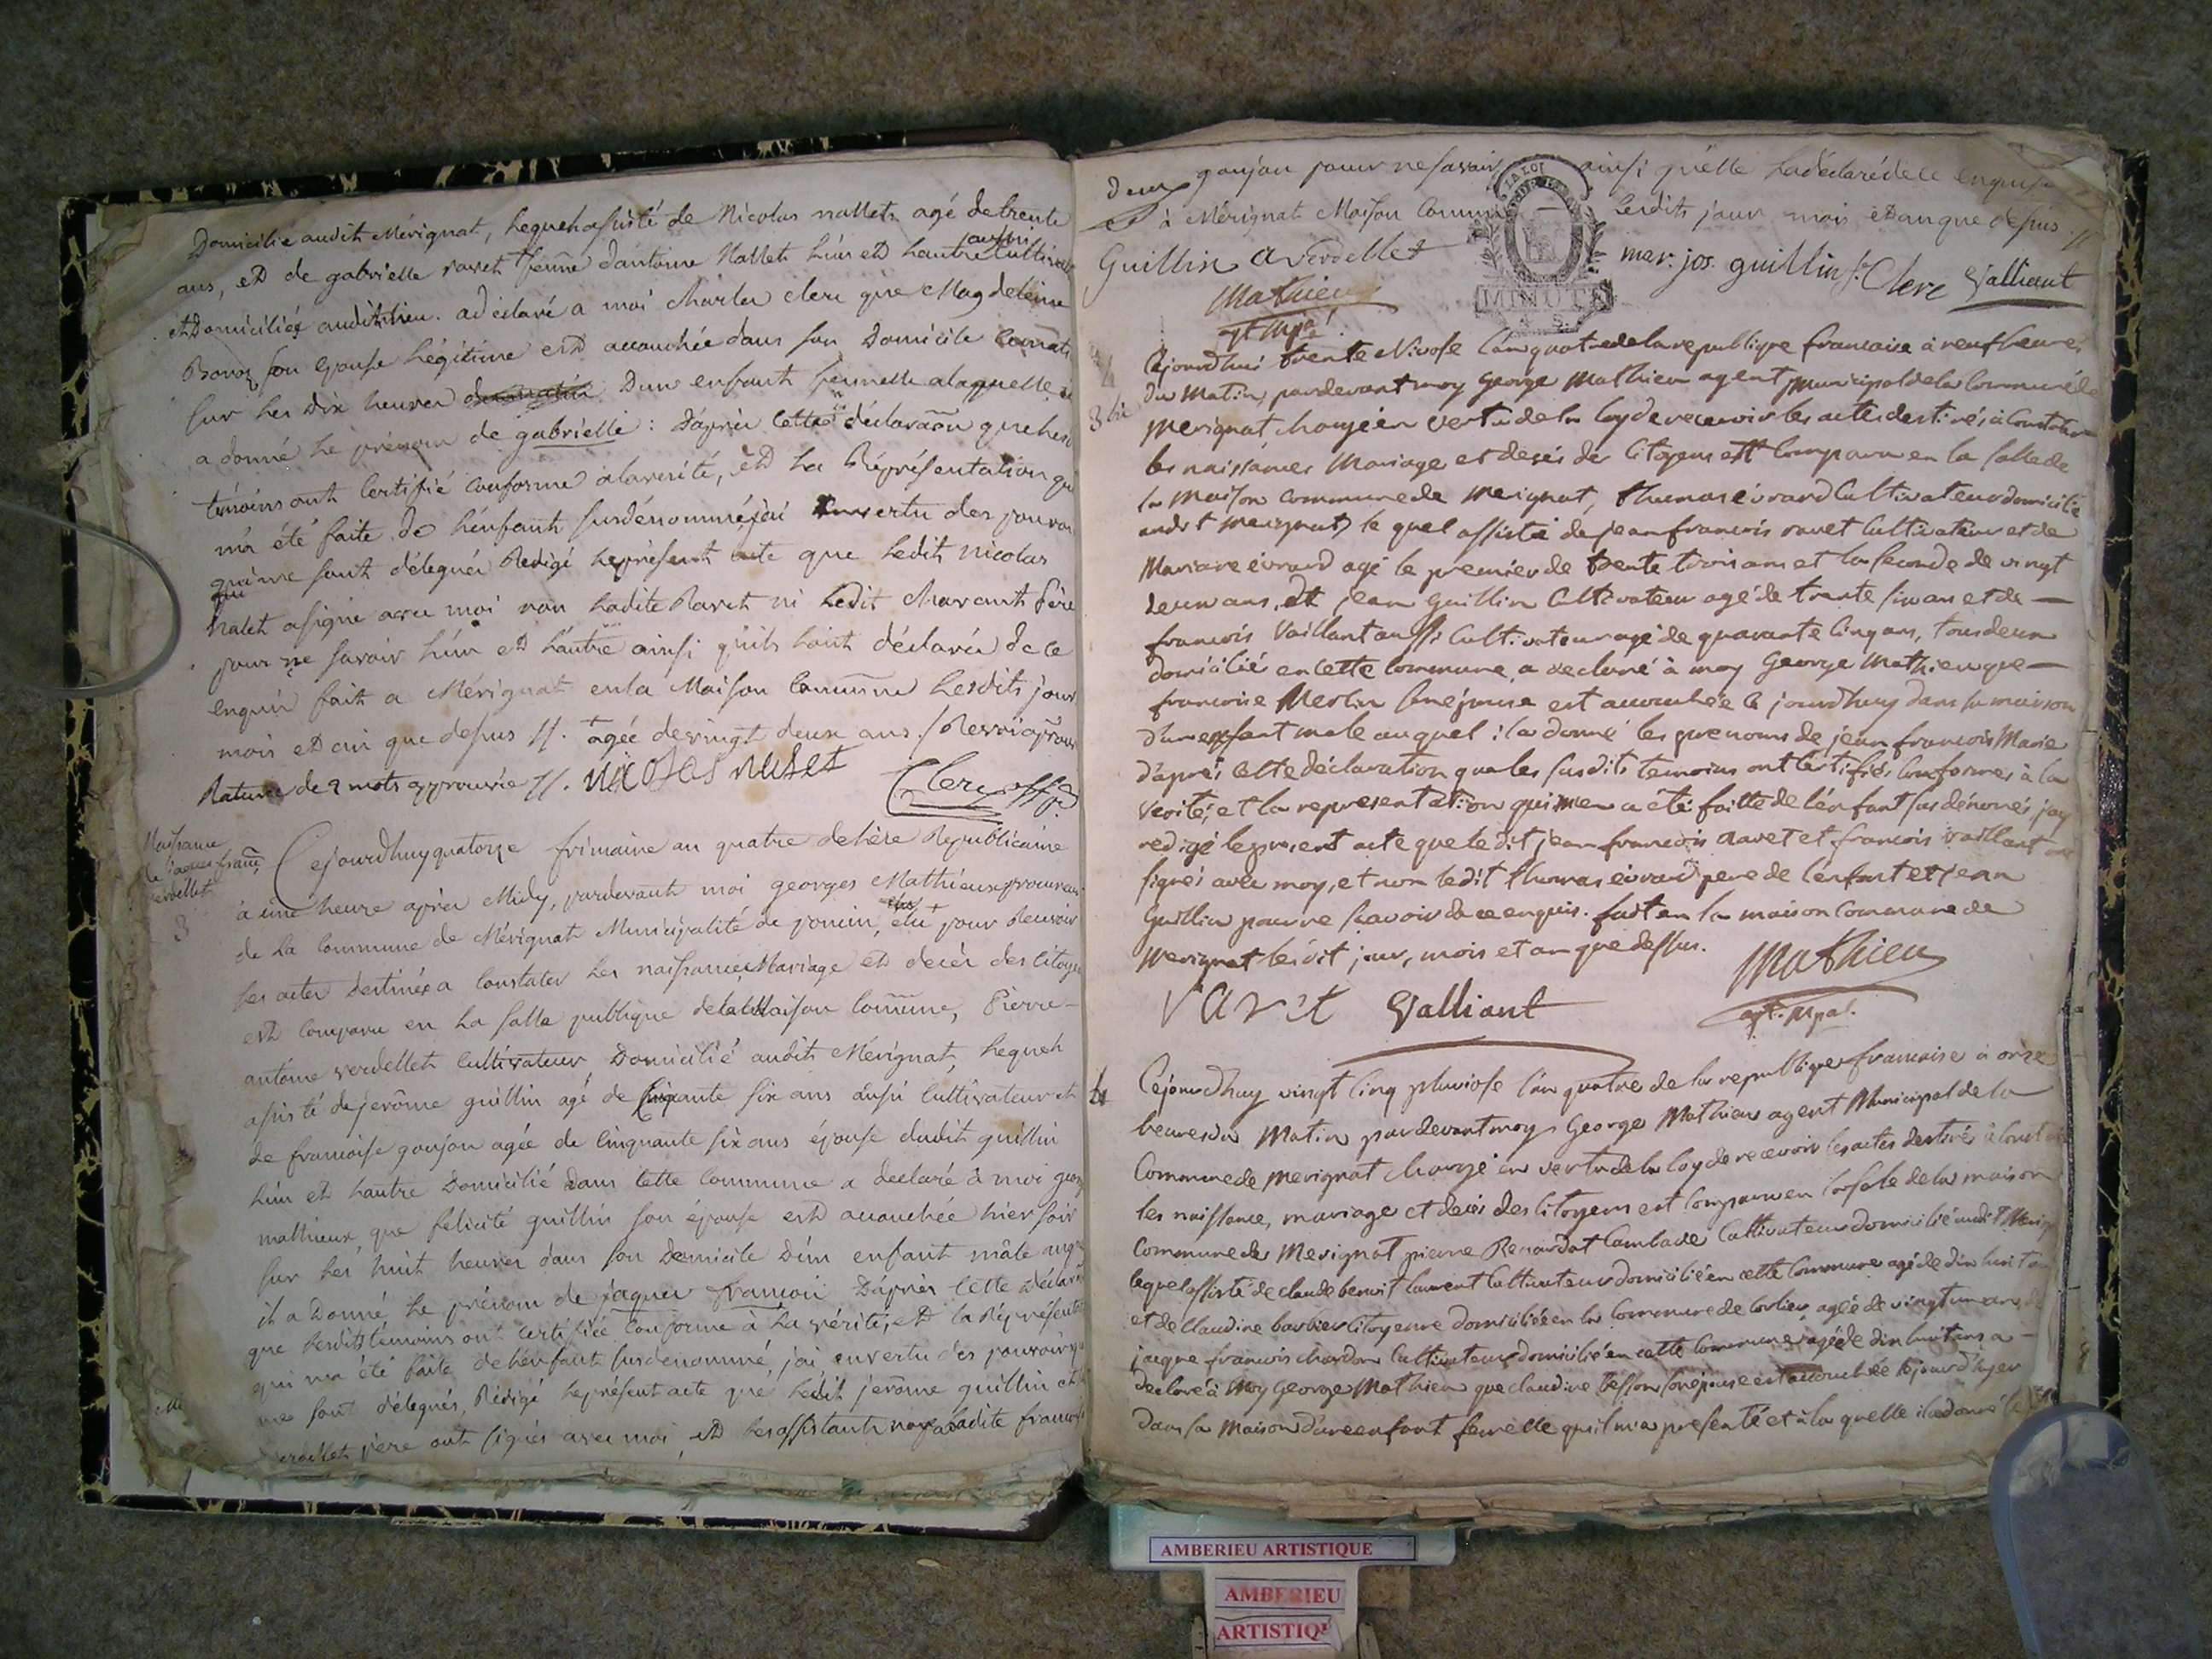 Domicilié audit Mérignat, lequel assisté de Nicolas nallet agé de trente
ans, et de gabrielle ravet femme d'antoine Nallet l'un et l'autre aussi Cultivat
et Domiciliés audit lieu. a déclaré a moi Charles clerc que Magdeleine
son epouse légitime est accouchée dans son Domicile
sur les Dix heures du matin D'un enfant femelle a laquelle il
a donné le prénom de gabrielle : D'après cette déclaraōn que les
témoins ont Certifié conforme a la verité, et la Réprésentation qui
m'a été faite de l'enfant susdénommé j'ai en vertu des pouvoirs
qui me sont délégués Redigé le présent acte que ledit Nicolas
nalet a signé avec moi non ladite Ravet ni ledit père
pour ne savoir l'un et l'autre ainsi qu'ils l'ont déclaré de ce
enquis fait a Mérignat en la Maison Commune lesdits jour
mois et an que desus //. agée de vingt deux ans
Rature de 2 mots approuvée //. nicolas nalet Clerc off p
Naissance
de jaques franç
verdellet
3
Cejourdhuy quatorze frimaire an quatre de l'ère Republicaine
à une heure après Midy, pardevant moi georges Mathieux procureur
de la Commune de Mérignat Municipalité de poncin, élu pour Recevoir
les actes Destinés a Constater les naissances Mariage et decès des Citoyens
est Comparu en la salle publique de la Maison Commune, Pierre-
antoine verdellet cultivateur Domicilié audit Mérignat, lequel
assisté de jerôme guillin agé de Cinquante six ans aussi Cultivateur et
de francoise goujon agée de Cinquante six ans épouse dudit guillin
l'un et l'autre Domicilié Dans Cette Commune a declaré à moi george
mathieux que felicité guillin son épouse est accouchée hier soir
sur les huit heures dans son Domicile D'un enfant mâle auquel
il a Donné le prénom de jaques francois D'après cette déclaraōn
que lesdits témoins ont certifiée Conforme à la vérité, et la Réprésentat
qui m'a été faite de l'enfant susdenommé, j'ai en vertu des pouvoirs qui
me sont délégués, Rédigé le présent acte que ledit jerôme guillin et
verdellet père ont signés avec moi, et les assistants non ladite francoise
goujon pour ne savoir ainsi qu'elle l'a déclaré de ce enquise
à Mérignat Maison Commune lesdits jour mois et an que desus //
Guillin a verdellet mar. jos. guillin f. Clerc Valliant
Mathieu
agt Mpal
LA LOI
MINUTE
3 bis
Cejourdhui trente Nivose l'an quatre de la republique francaise à neuf heures
du Matin, pardevant moy George Mathieu agent municipal de la Commune de
Merignat, chargé en vertu de la loy de recevoir les actes destinés à Constater
les naissances Mariage et decés des Citoyens est Comparu en la salle de
la Maison Commune de Merignat, thumas évrard Cultivateur domicilié
audit Merignat, le quel assisté de jean francois ravet Cultivateur et de
Mariane évrard agé le premier de trente trois ans et la seconde de vingt
deux ans, et jean Guillin Cultivateur agé de trente six ans et de —
francois Vaillant aussi Cultivateur agé de quarante Cinq ans, tous deux
domicilié en cette commune, a declaré à moy George Mathieu que —
francoise Merlin son epouse est accouchée ce jourdhuy dans sa maison
d'un enfant male auquel il a donné les prenoms de jean francois Marie
d'après cette déclaration que les susdits temoins ont certifiés conformes à la
verité, et la representation qui m'en a été faitte de l'enfant susdénomés, jay
redigé le present acte que ledit jean francois Ravet et francois vaillant ont
signés avec moy, et non ledit thumas évrard pere de l'enfant et jean
Guillin pour ne scavoir de ce enquis. fait en la maison Commune de
Merignat lesdit jour, mois et an que dessus.
Mathieu
ravet Valliant agt. Mpal.
4
Cejourdhuy vingt cinq pluviose l'an quatre de la republique francaise à onze
heures du Matin pardevant moy George Mathieu agent Municipal de la
Commune de Merignat chargé en vertu de la loy de recevoir les actes destinés à Constater
les naissance, mariage et decés des Citoyens est Comparu en la sale de la maison
Commune de Merignat pierre Renardat Cultivateur domicilié audit Merig
lequel assisté de claude benoit laurent Cultivateur domicilié en cette Commune agé de dix huit ans
et de Claudine barbier Citoyenne domiciliée en la Commune de agée de vingt un ans
jacque francois chardon Cultivateur domicilié en cette Commune, agé de dix huit ans a —
declaré à Moy George Mathieu que claudine son epouse est accouchée ce jourd'huy
dans sa Maison d'une enfant femelle qu'il m'a presenté et à la quelle il a donné le
AMBERIEU ARTISTIQUE
AMBERIEU
ARTISTIQU